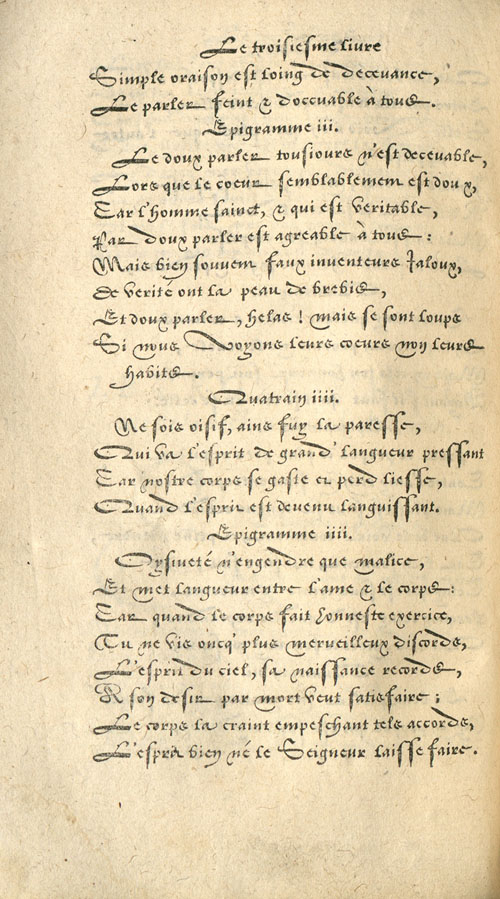 Le troisiesme livre
Simple oraison est loing de decevance,
Le parler feint & doccuable à tous.
Epigramme iii.
Le doux parler tousiours n'est decevable,
Lors que le coeur semblablement est doux,
Car l'homme sainct, & qui est veritable,
Par doux parler est agreable à tous:
Mais bien souvent faux inventeurs Jaloux,
De verité ont la peau de brebis,
Et doux parler, helas! mais se sont loups
Si nous Voyons leurs coeurs non leurs
habits.
Quatrain iiii.
Ne sois oisif, ains fuy la paresse,
Qui va l'esprit de grand' langueur pressant
Car nostre corps se gaste et perd liesse,
Quand l'esprit est devenu languissant.
Epigramme iiii.
Oysiveté n'engendre que malice,
Et met langueur entre l'ame & le corps:
Car quand le corps fait honneste exercice,
Tu ne vis oncq' plus merveilleux discords,
L'esprit du ciel, sa naissance records,
A son desir par mort veut satisfaire;
Le corps la craint empeschant tels accords,
L'esprit bien né le Seigneur laisse faire.